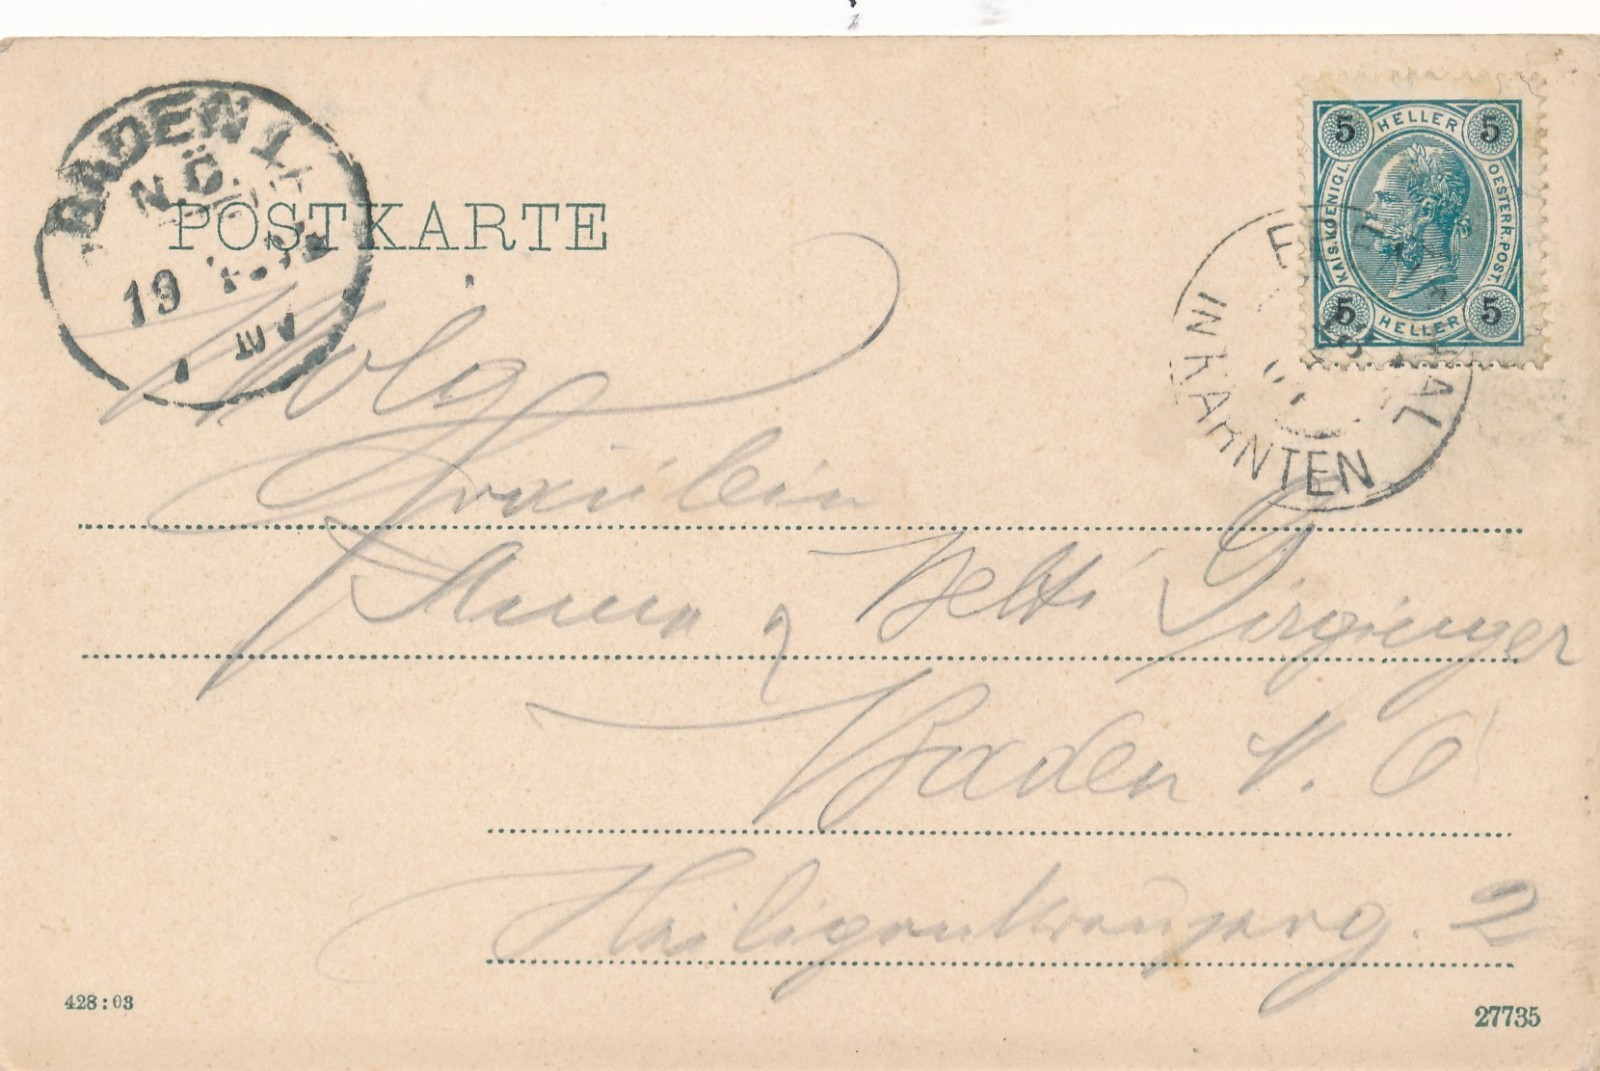 BADEN 1
N.Ö.
19
POSTKARTE
5 HELLER 5
KAIS. KOENIGL. OESTERR. POST.
5 HELLER 5
IN KÄRNTEN
Wolg
Fräulein
Anna & Betti Girginger
Baden N. Ö
Heiligenkreuzerg. 2
428:03
27735